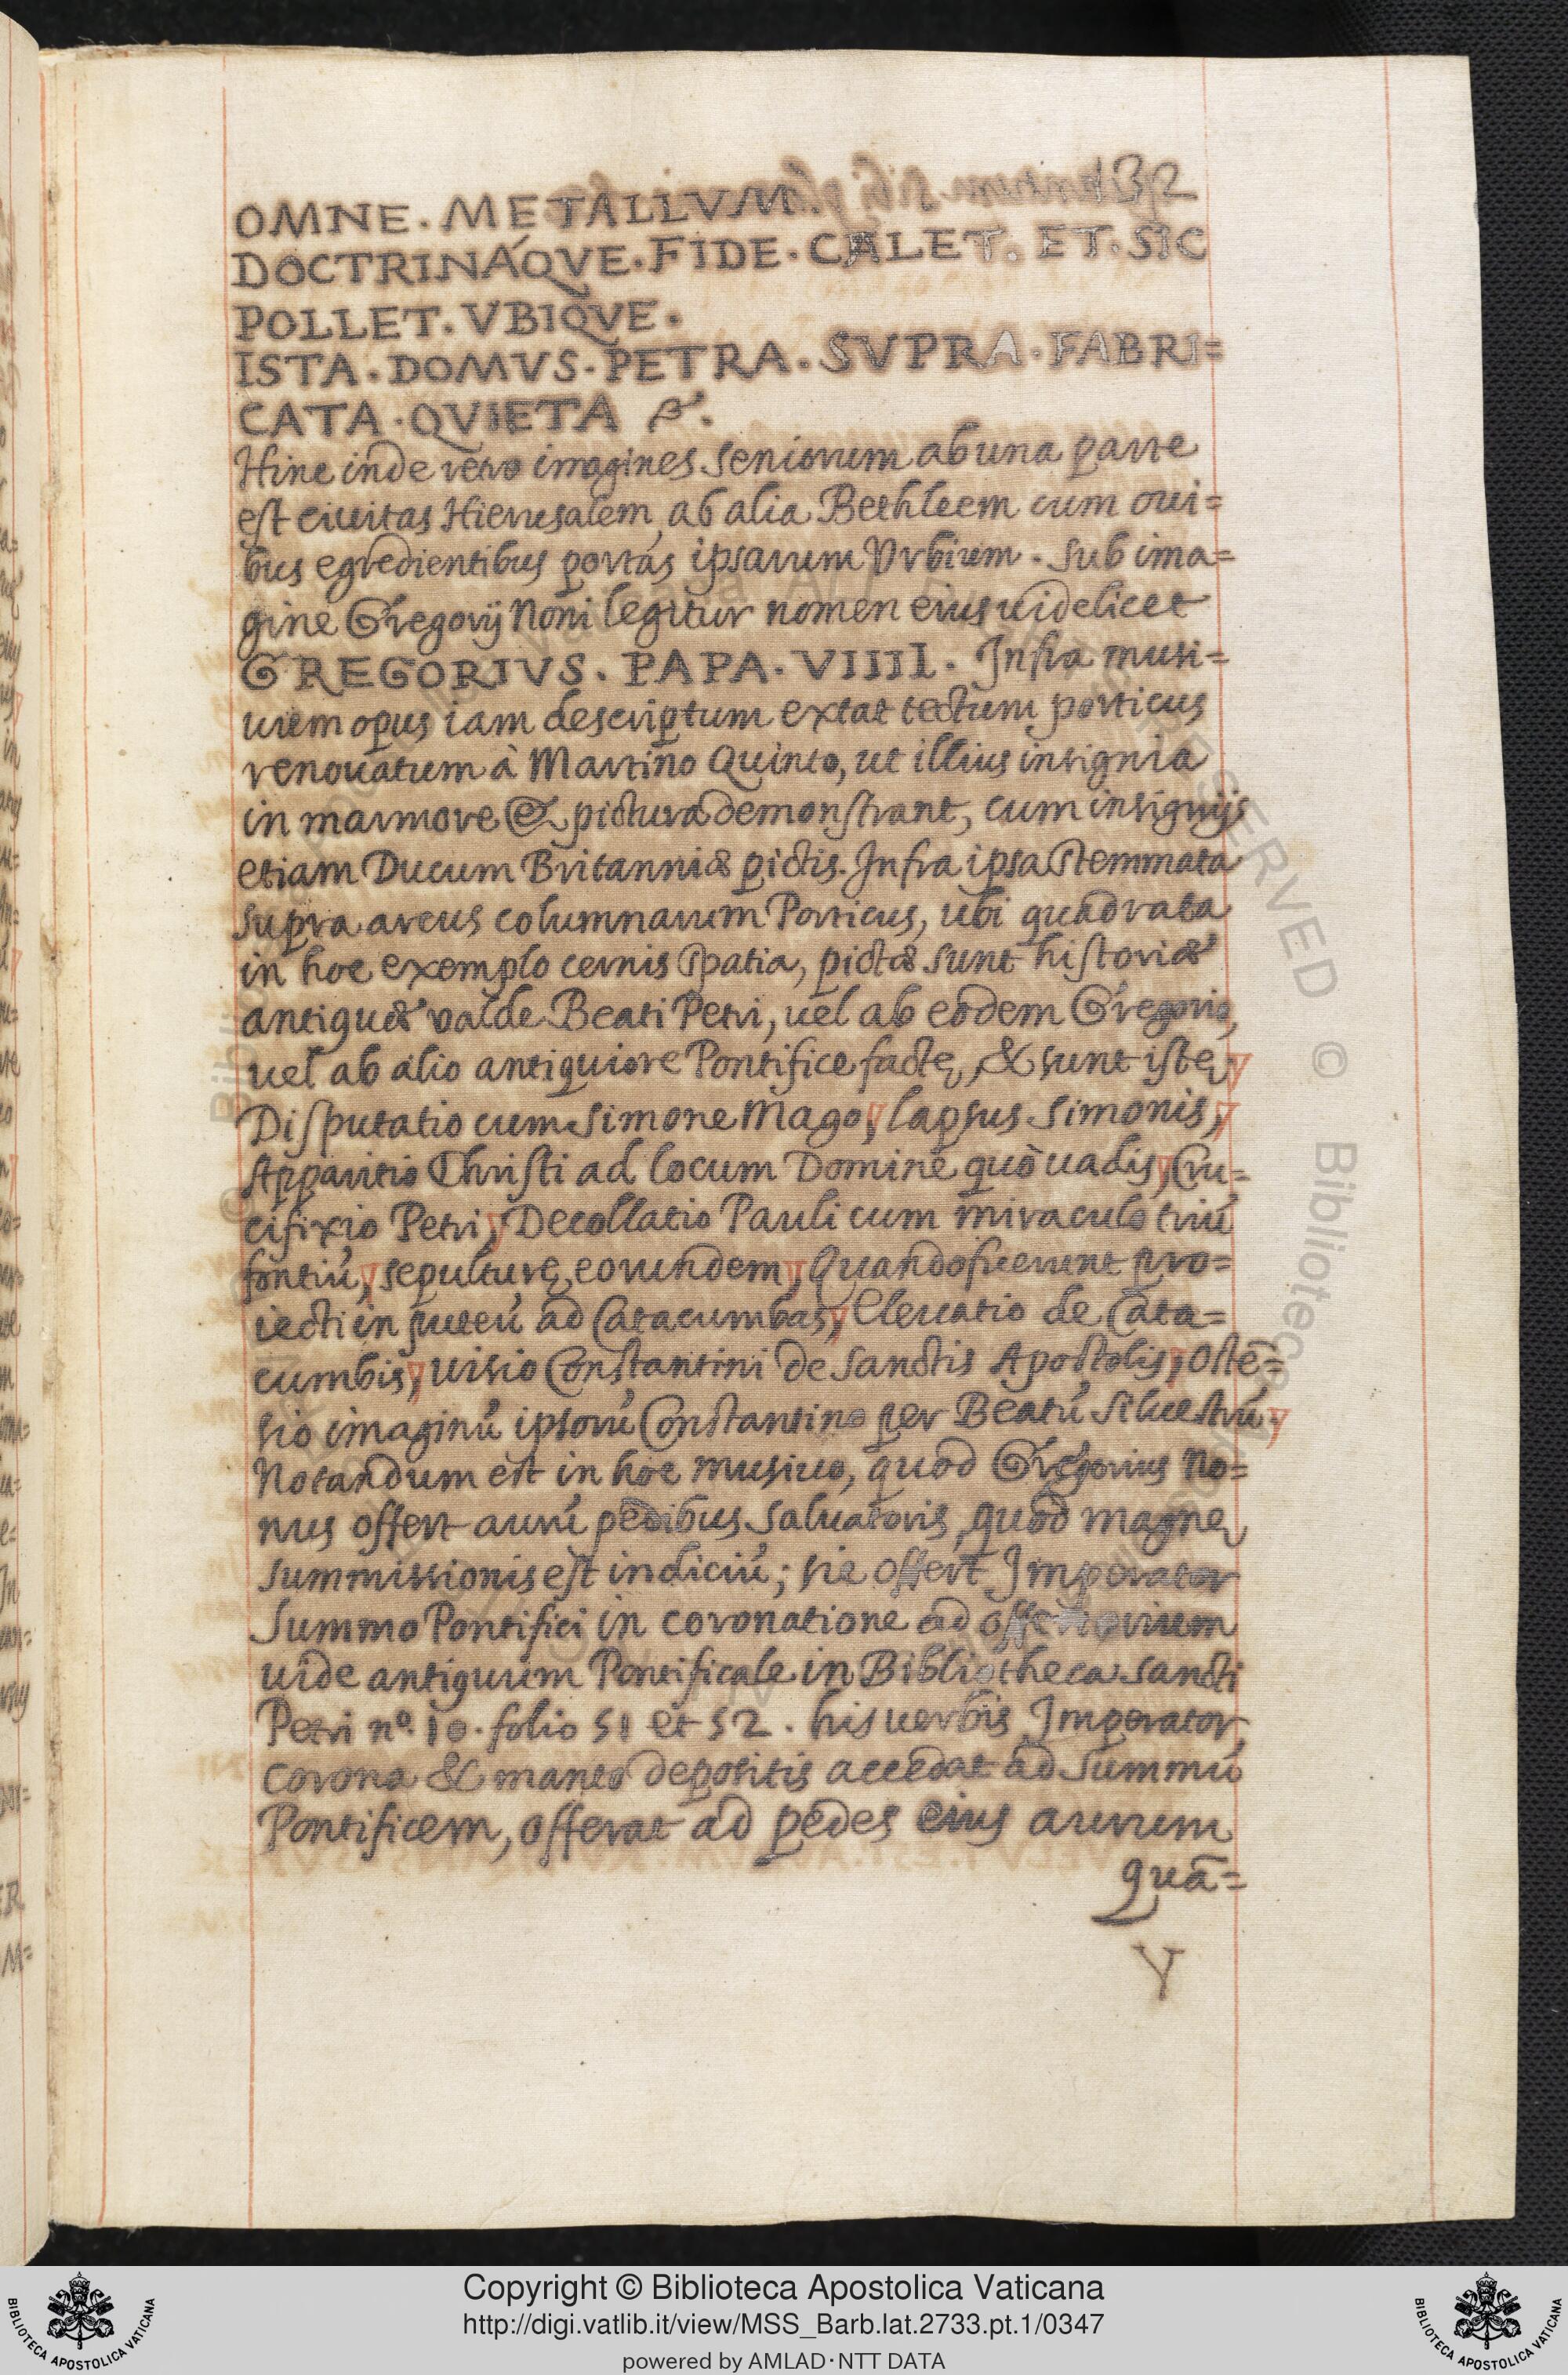 132
OMNE. METALLVM.
DOCTRINÁQVE. FIDE. CALET. ET. SIC
POLLET. VBIQVE.
ISTA. DOMVS. PETRA. SVPRA. FABRI=
CATA. QVIETA &.
Hinc inde vero imagines Seniorum ab una parte
est ciuitas Hierusalem, ab alia Bethleem cum oui=
bus egredientibus portas ipsarum Vrbium. Sub ima=
gine Gregorij Noni legitur nomen eius uidelicet
GREGORIVS. PAPA. VIIII. Infra musi=
uum opus iam descriptum extat tectum porticus
renouatum à Martino Quinto, ut illius insignia
in marmore & pictura demonstrant, cum insignijs
etiam Ducum Britanniæ pictis. Infra ipsa stemmata
supra arcus columnarum Porticus, ubi quadrata
in hoc exemplo cernis spatia, pictæ sunt historiæ
antiquæ valde Beati Petri, uel ab eodem Gregorio,
uel ab alio antiquiore Pontifice factę, & sunt istę,
Disputatio cum Simone Mago, lapsus Simonis,
Apparitio Christi ad locum Domine quò uadis, Cru=
cifixio Petri, Decollatio Pauli cum miraculo triũ
fontiũ, sepulturę eorundem, Quando fuerunt pro=
iecti in puteũ ad Catacumbas, Eleuatio de Cata=
cumbis, uisio Constantini de Sanctis Apostolis, ostẽ=
sio imaginũ ipsorũ Constantino per Beatũ Siluestrũ.
Notandum est in hoc musiuo, quod Gregorius No=
nus offert aurũ pedibus Saluatoris, quod magnę
summissionis est indiciũ; sic offert Imperator
Summo Pontifici in coronatione ad offertorium
uide antiquum Pontificale in Bibliotheca Sancti
Petri nº. 10. folio 51 et 52. his uerbis Imperator,
corona & manto depositis accedat ad Summũ
Pontificem, offerat ad pedes eius aurum
quã=
Y
Copyright © Biblioteca Apostolica Vaticana
http://digi.vatlib.it/view/MSS_Barb.lat.2733.pt.1/0347
powered by AMLAD·NTT DATA
BIBLIOTECA APOSTOLICA VATICANA
BIBLIOTECA APOSTOLICA VATICANA